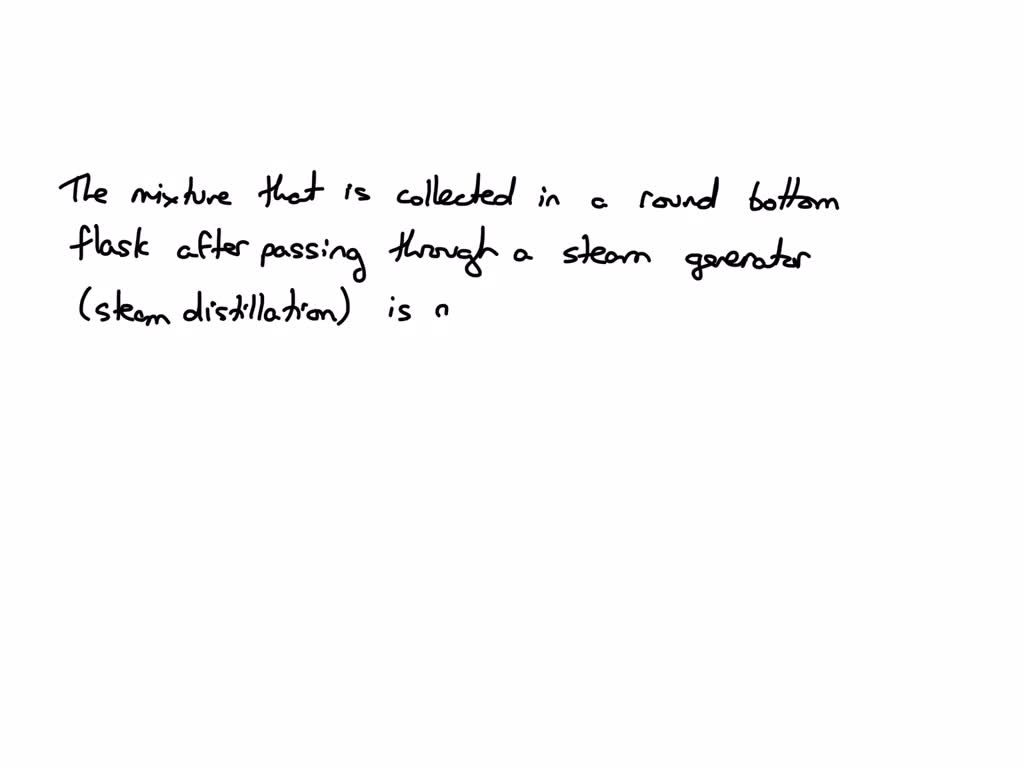 The mixture that is collected in a round bottom
flask after passing through a steam generator
(steam distillation) is a